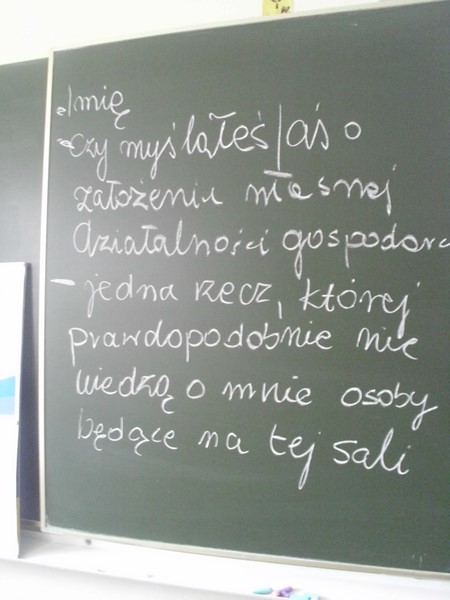 - Imię
- czy myślałeś|aś o
założeniu własnej
działalności gospodarc
- jedna rzecz, której
prawdopodobnie nie
wiedzą o mnie osoby
będące na tej sali